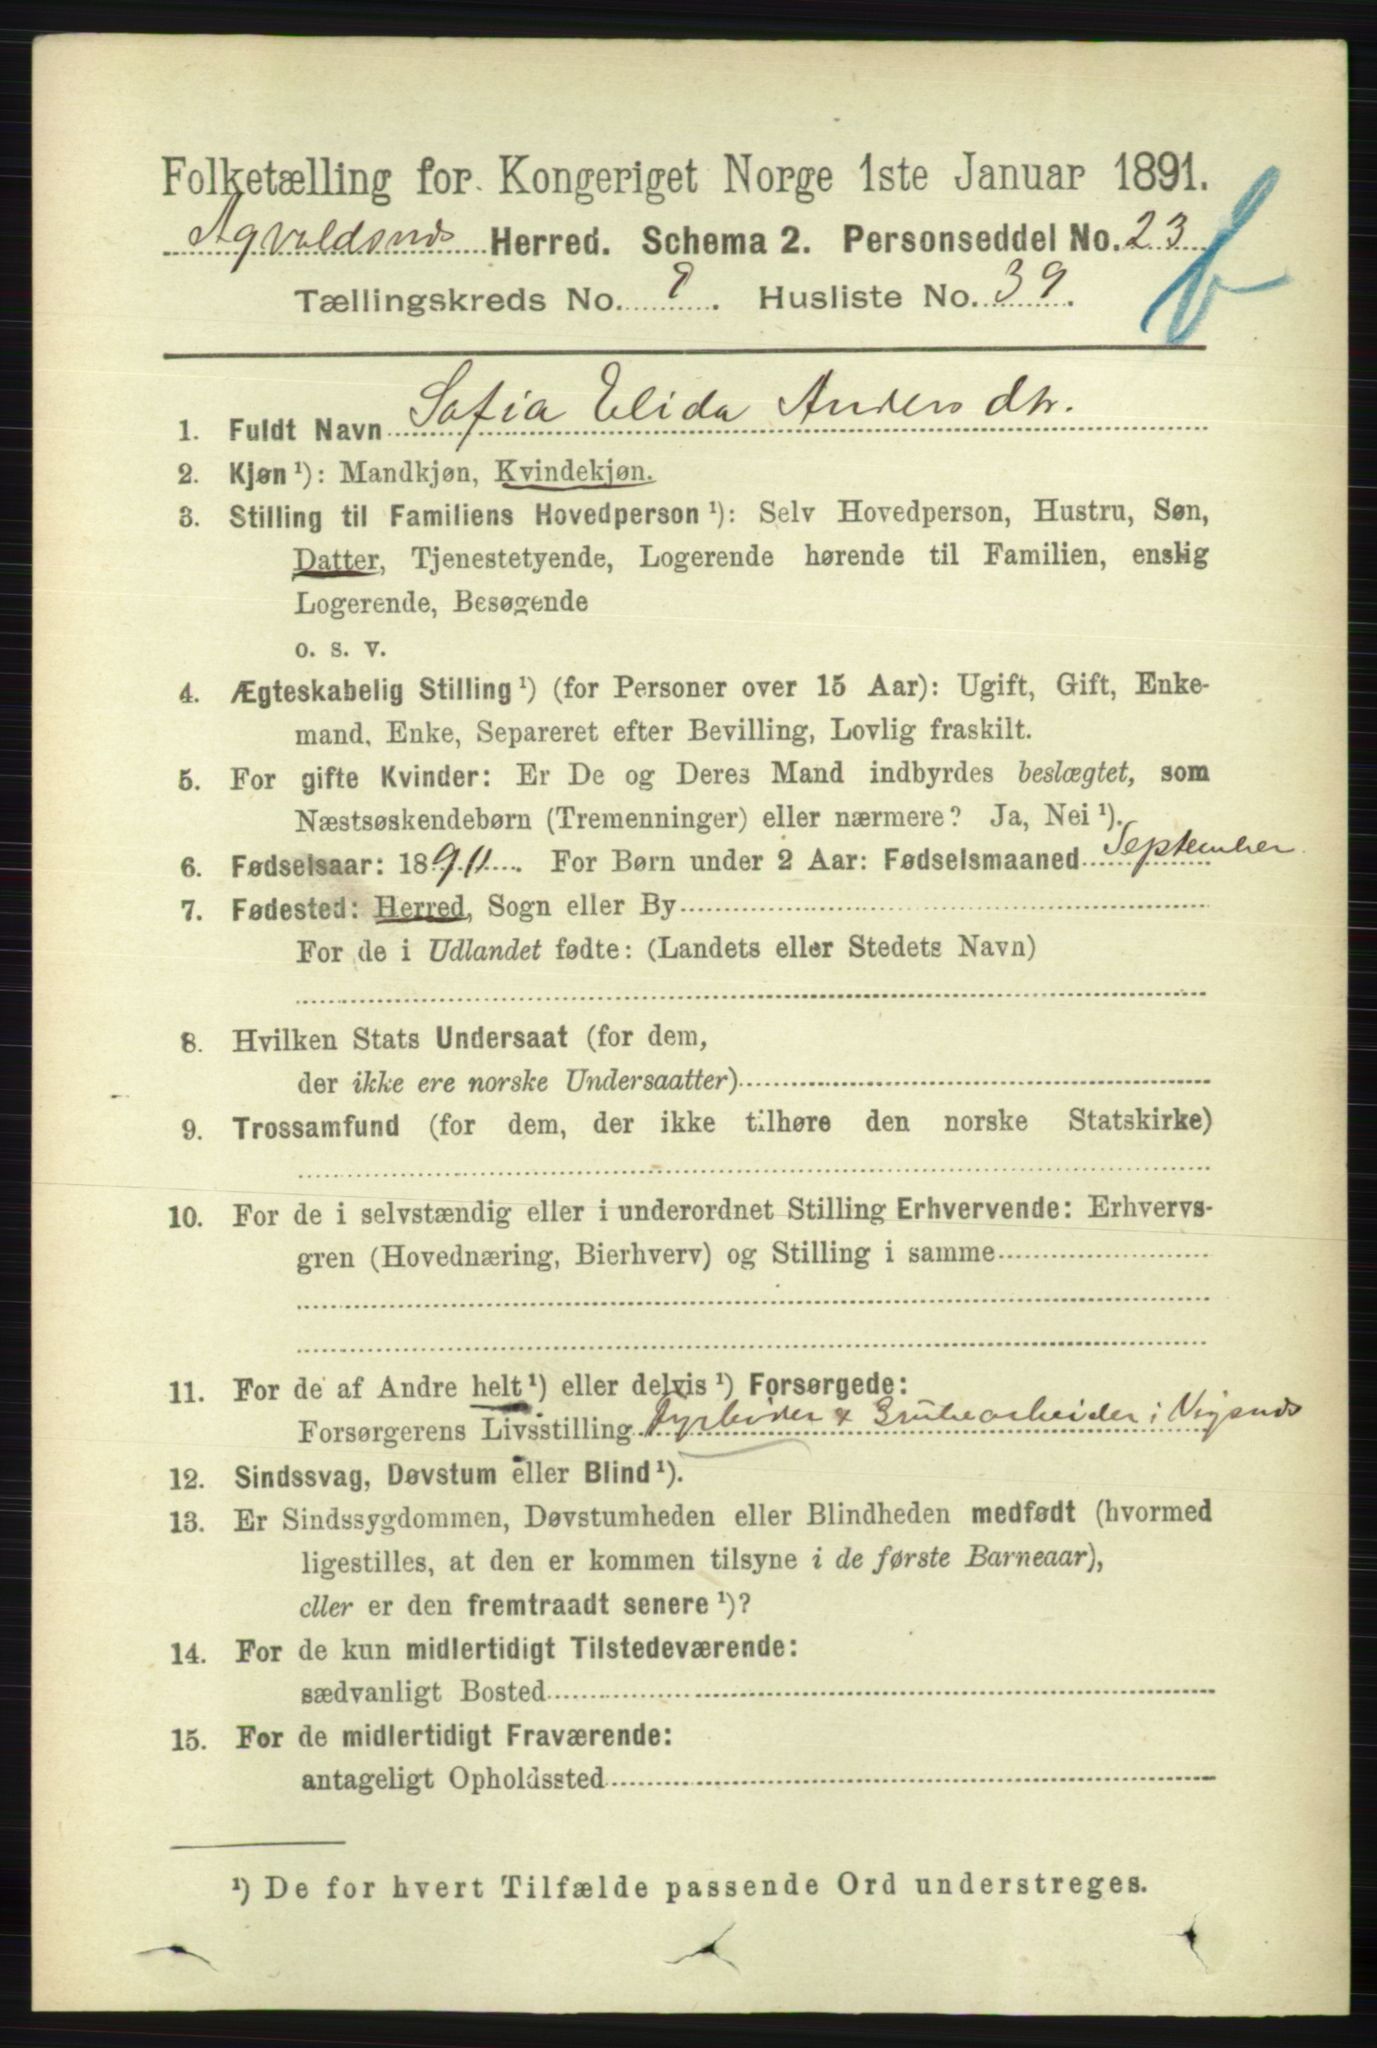 Folketælling for Kongeriget Norge 1ste Januar 1891.
Agvaldsnds Herred. Schema 2. Personseddel No. 23
Tællingskreds No. 9. Husliste No. 39.
b
1. Fuldt Navn Sofia Elida Andersdtr.
2. Kjøn ¹): Mandkjøn, Kvindekjøn.
3. Stilling til Familiens Hovedperson ¹): Selv Hovedperson, Hustru, Søn,
Datter, Tjenestetyende, Logerende hørende til Familien, enslig
Logerende, Besøgende
o. s. v.
4. Ægteskabelig Stilling ¹) (for Personer over 15 Aar): Ugift, Gift, Enke-
mand, Enke, Separeret efter Bevilling, Lovlig fraskilt.
5. For gifte Kvinder: Er De og Deres Mand indbyrdes beslægtet, som
Næstsøskendebørn (Tremenninger) eller nærmere? Ja, Nei ¹).
6. Fødselsaar: 1890. For Børn under 2 Aar: Fødselsmaaned September
7. Fødested: Herred, Sogn eller By
For de i Udlandet fødte: (Landets eller Stedets Navn)
8. Hvilken Stats Undersaat (for dem,
der ikke ere norske Undersaatter)
9. Trossamfund (for dem, der ikke tilhøre den norske Statskirke)
10. For de i selvstændig eller i underordnet Stilling Erhvervende: Erhvervs-
gren (Hovednæring, Bierhverv) og Stilling i samme
11. For de af Andre helt ¹) eller delvis ¹) Forsørgede:
Forsørgerens Livsstilling Fyrbøder & Grubearbeider i Vigsnds
12. Sindssvag, Døvstum eller Blind ¹).
13. Er Sindssygdommen, Døvstumheden eller Blindheden medfødt (hvormed
ligestilles, at den er kommen tilsyne i de første Barneaar),
eller er den fremtraadt senere ¹)?
14. For de kun midlertidigt Tilstedeværende:
sædvanligt Bosted
15. For de midlertidigt Fraværende:
antageligt Opholdssted
¹) De for hvert Tilfælde passende Ord understreges.